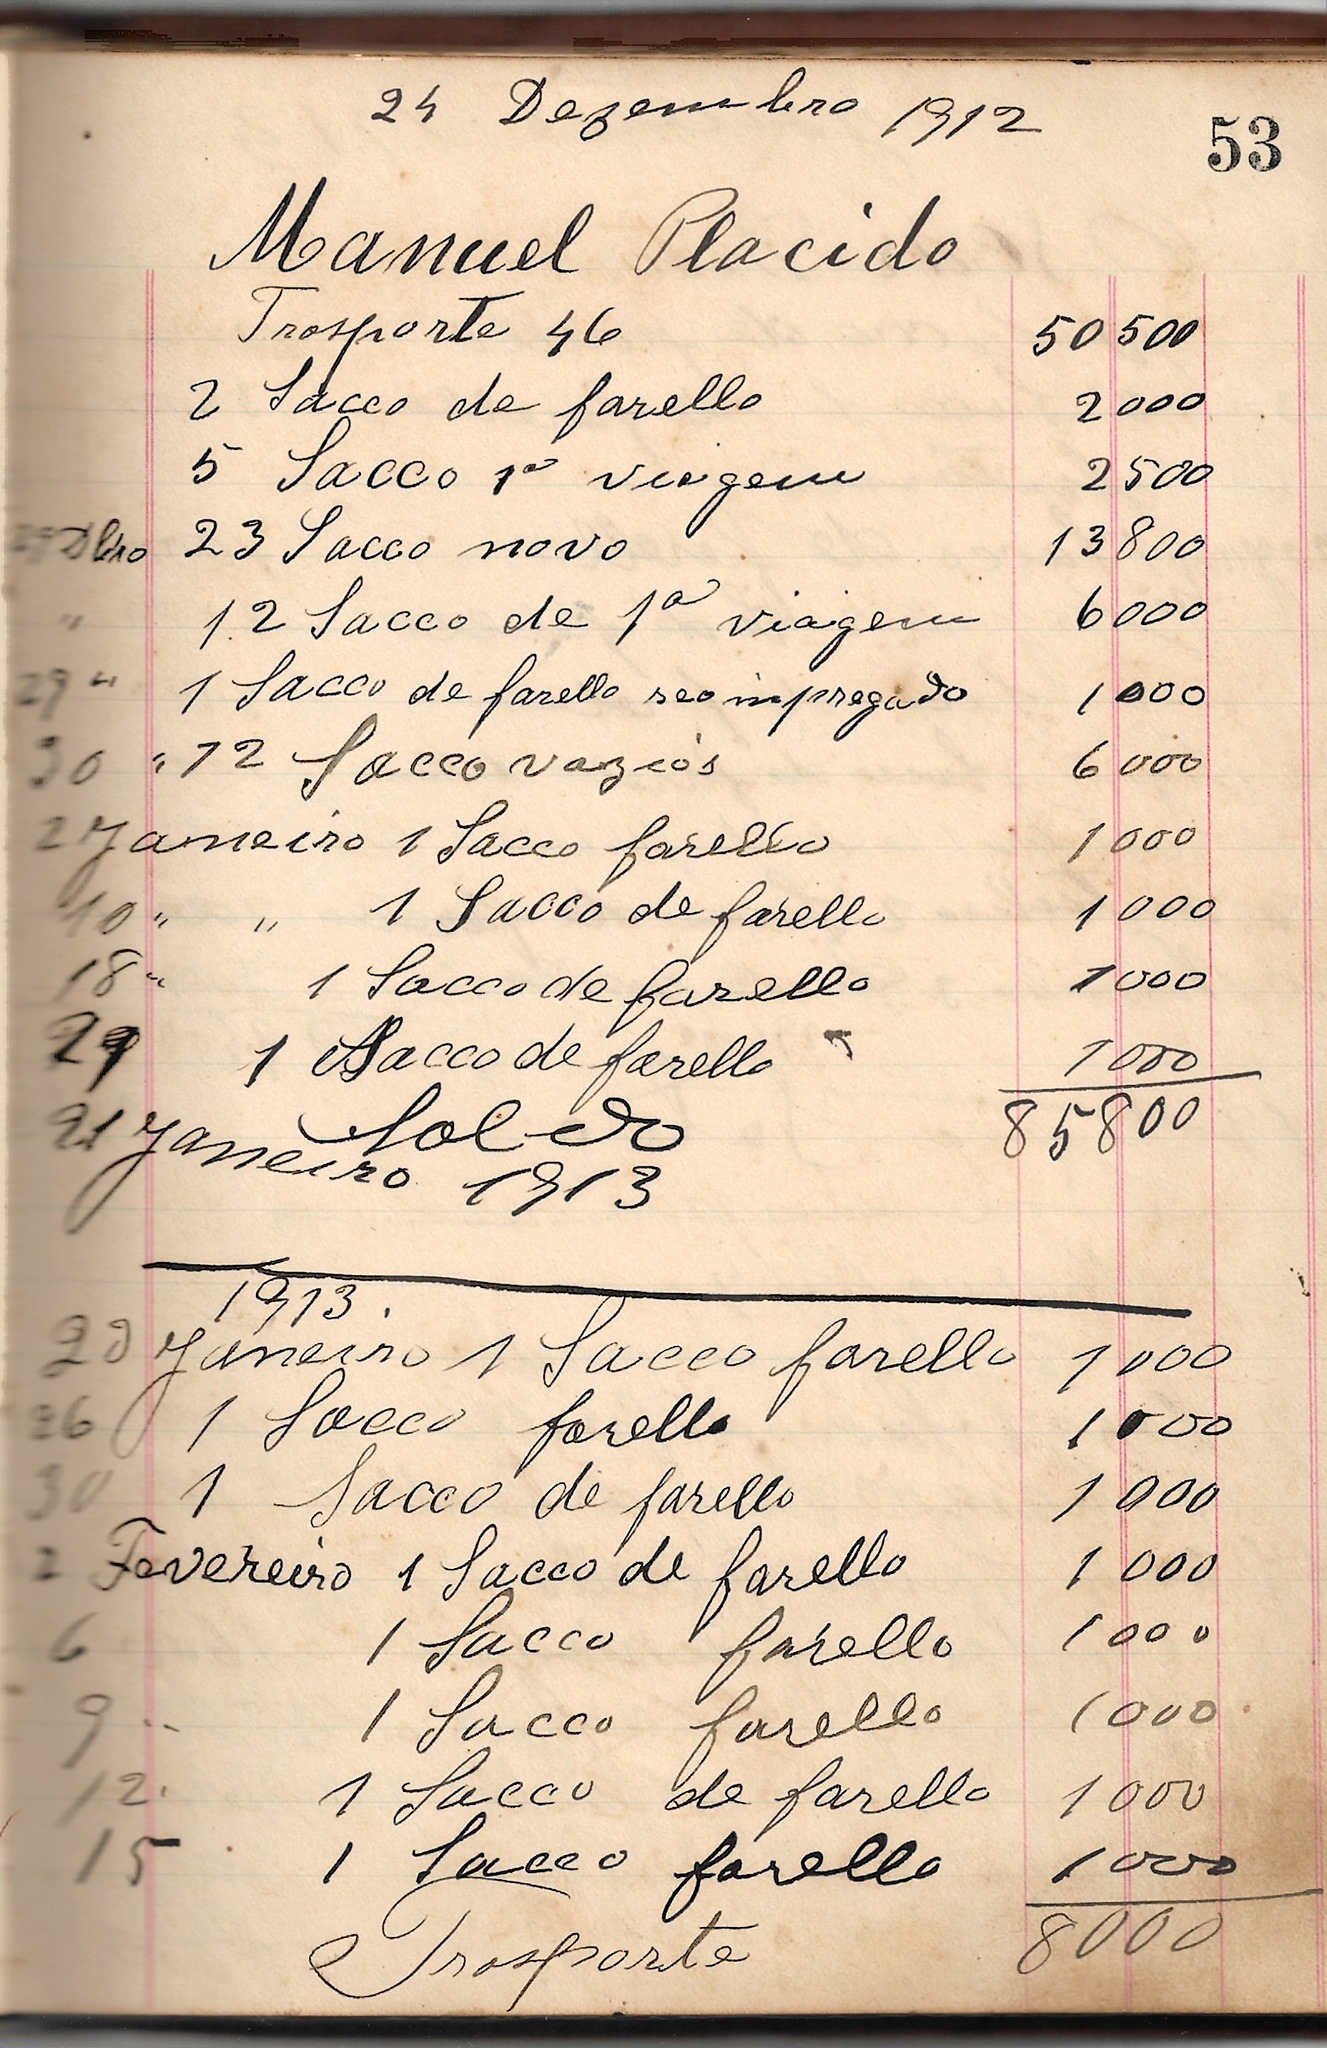 24 Dezembro 1912
53
Manuel Placido
Trosporte 46 50 500
2 Sacco de farello 2 000
5 Sacco 1ª viagem 2 500
Dbro 23 Sacco novo 13 800
" 12 Sacco de 1ª viagem 6 000
29 " 1 Sacco de farello seo impregado 1 000
30 " 12 Sacco vazios 6 000
2 Janeiro 1 Sacco farello 1 000
10 " " 1 Sacco de farello 1 000
18 " 1 Sacco de farello 1 000
1 Sacco de farello 1 000
Soldo 85 800
21 Janeiro 1913
1913.
Janeiro 1 Sacco farello 1 000
26 1 Sacco farello 1 000
30 1 Sacco de farello 1 000
2 Fevereiro 1 Sacco de farello 1 000
6 1 Sacco farello 1 000
9 " 1 Sacco farello 1 000
12. 1 Sacco de farello 1 000
15 1 Sacco farello 1 000
Trosporte 8000